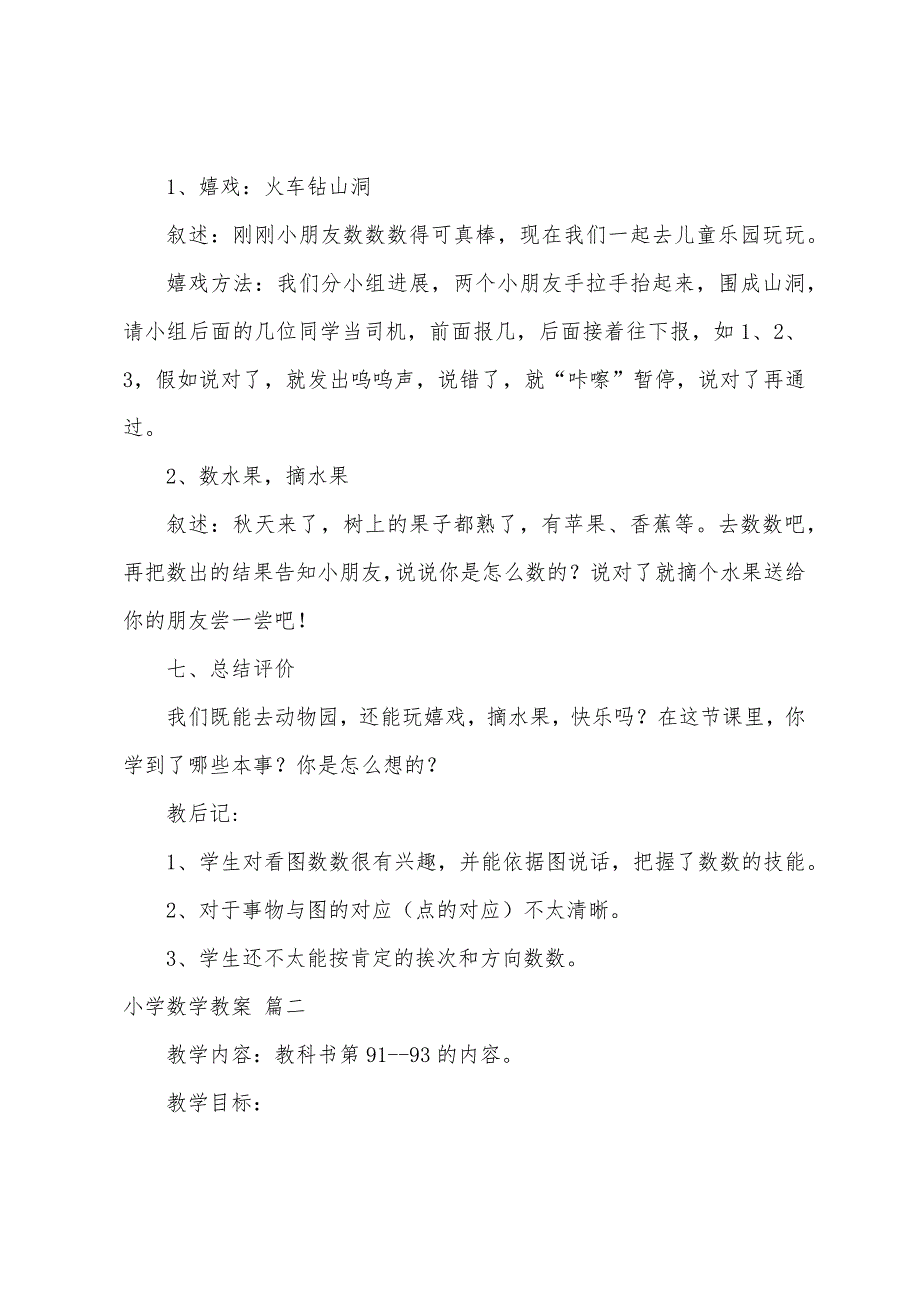 1、嬉戏：火车钻山洞
叙述：刚刚小朋友数数数得可真棒，现在我们一起去儿童乐园玩玩。
嬉戏方法：我们分小组进展，两个小朋友手拉手抬起来，围成山洞，
请小组后面的几位同学当司机，前面报几，后面接着往下报，如 1、2、
3，假如说对了，就发出呜呜声，说错了，就“咔嚓”暂停，说对了再通
过。
2、数水果，摘水果
叙述：秋天来了，树上的果子都熟了，有苹果、香蕉等。去数数吧，
再把数出的结果告知小朋友，说说你是怎么数的？说对了就摘个水果送给
你的朋友尝一尝吧！
七、总结评价
我们既能去动物园，还能玩嬉戏，摘水果，快乐吗？在这节课里，你
学到了哪些本事？你是怎么想的？
教后记：
1、学生对看图数数很有兴趣，并能依据图说话，把握了数数的技能。
2、对于事物与图的对应（点的对应）不太清晰。
3、学生还不太能按肯定的挨次和方向数数。
小学数学教案 篇二
教学内容：教科书第 91--93 的内容。
教学目标：